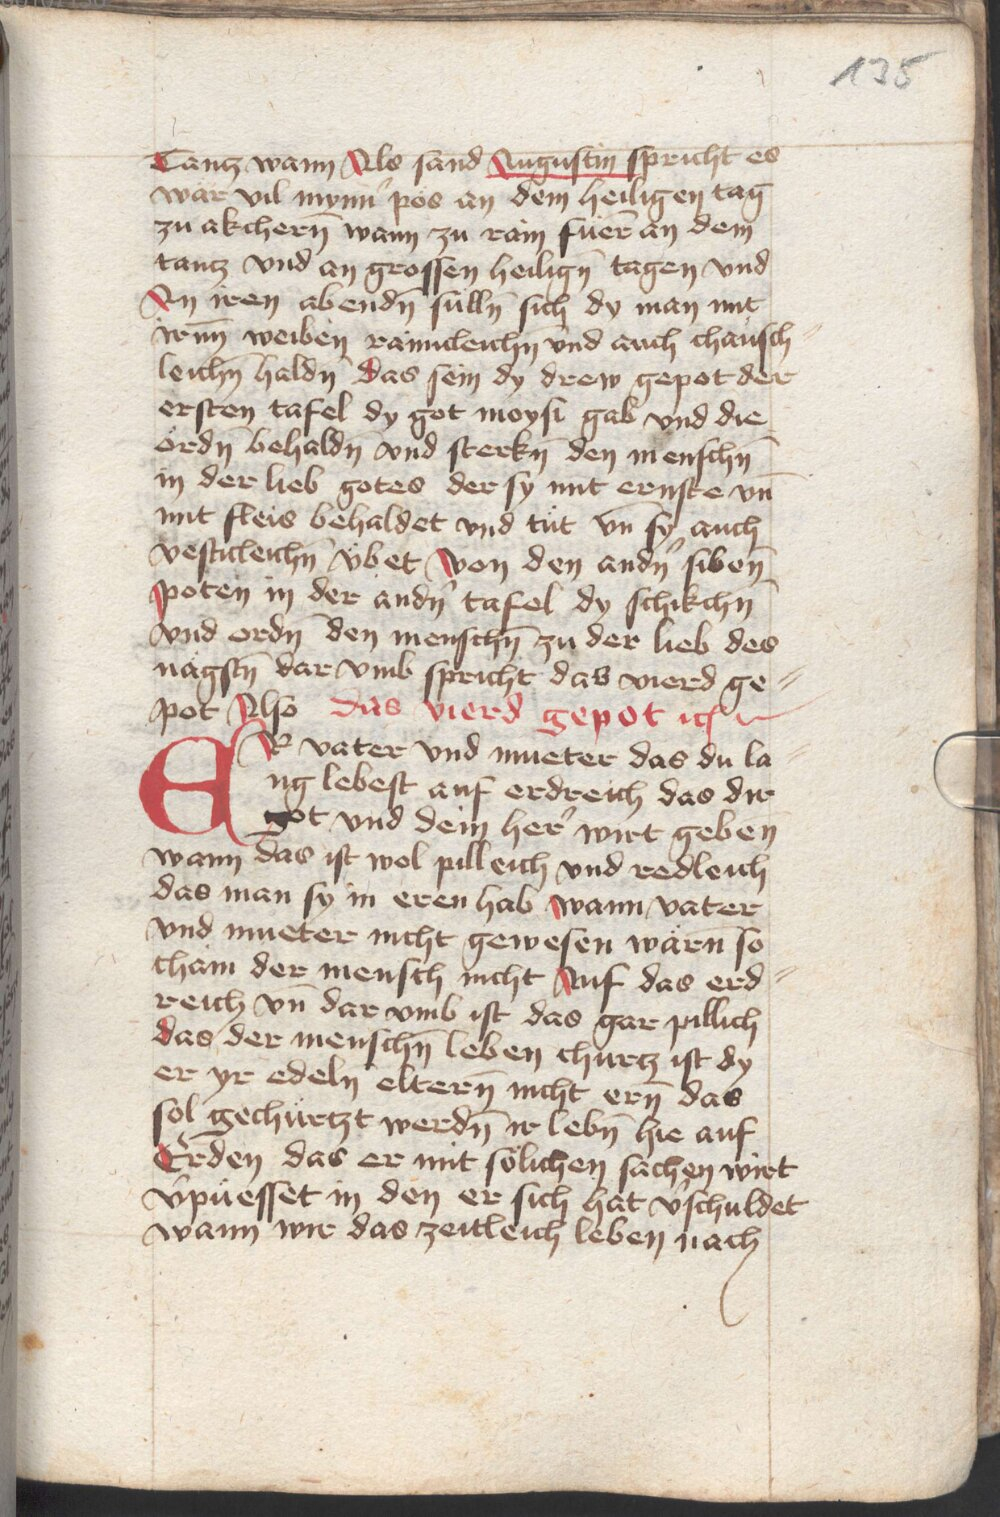 135
Tantz wann Als sand Augustin spricht es
wär vil mynn̄ pös an dem heiligen tag
zu akchern̄ wann zu rain füer̄ an dem
tantz vnd an grossen heilign̄ tagen vnd
An iren abendn̄ sulln̄ sich dy man mit
irnn̄ weiben rainicleichn̄ vnd auch chäusch=
leichn̄ haldn̄ Das sein dy drew gepot der
ersten tafel dy got moysi gab vnd die
ördn̄ behaldn̄ vnd sterkn̄ den menschn̄
in der lieb gotes der sy mit ernste vn̄
mit fleis behaldet vnd tüt vn̄ sy auch
vesticleichn̄ vbet Von den andn̄ siben̄
poten in der andn̄ tafel dy schikchn̄
vnd ordn̄ den menschn̄ zu der lieb des
nägstn̄ dar vmb spricht das vierd ge=
pot Also Das vierd gepot ist
ER vater vnd mueter das du la
ng lebest auf erdreich das dir
got vnd dein her̄ wirt geben
wann das ist wol pilleich vnd redleich
das man sy in eren hab wann vater
vnd mueter nicht gewesen wärn̄ so
cham der mensch nicht Auf das erd=
reich vn̄ dar vmb ist das gar pillich
das der menschn̄ leben churtz ist dy
er yr edeln eltern̄ nicht ern̄ das
sol gechürtzt werdn̄ ir lebn̄ hie auf
Erden das er mit sölichen sachen wirt
v̄püesset in den er sich hat v̄schuldet
wann wir das zeitleich leben nach